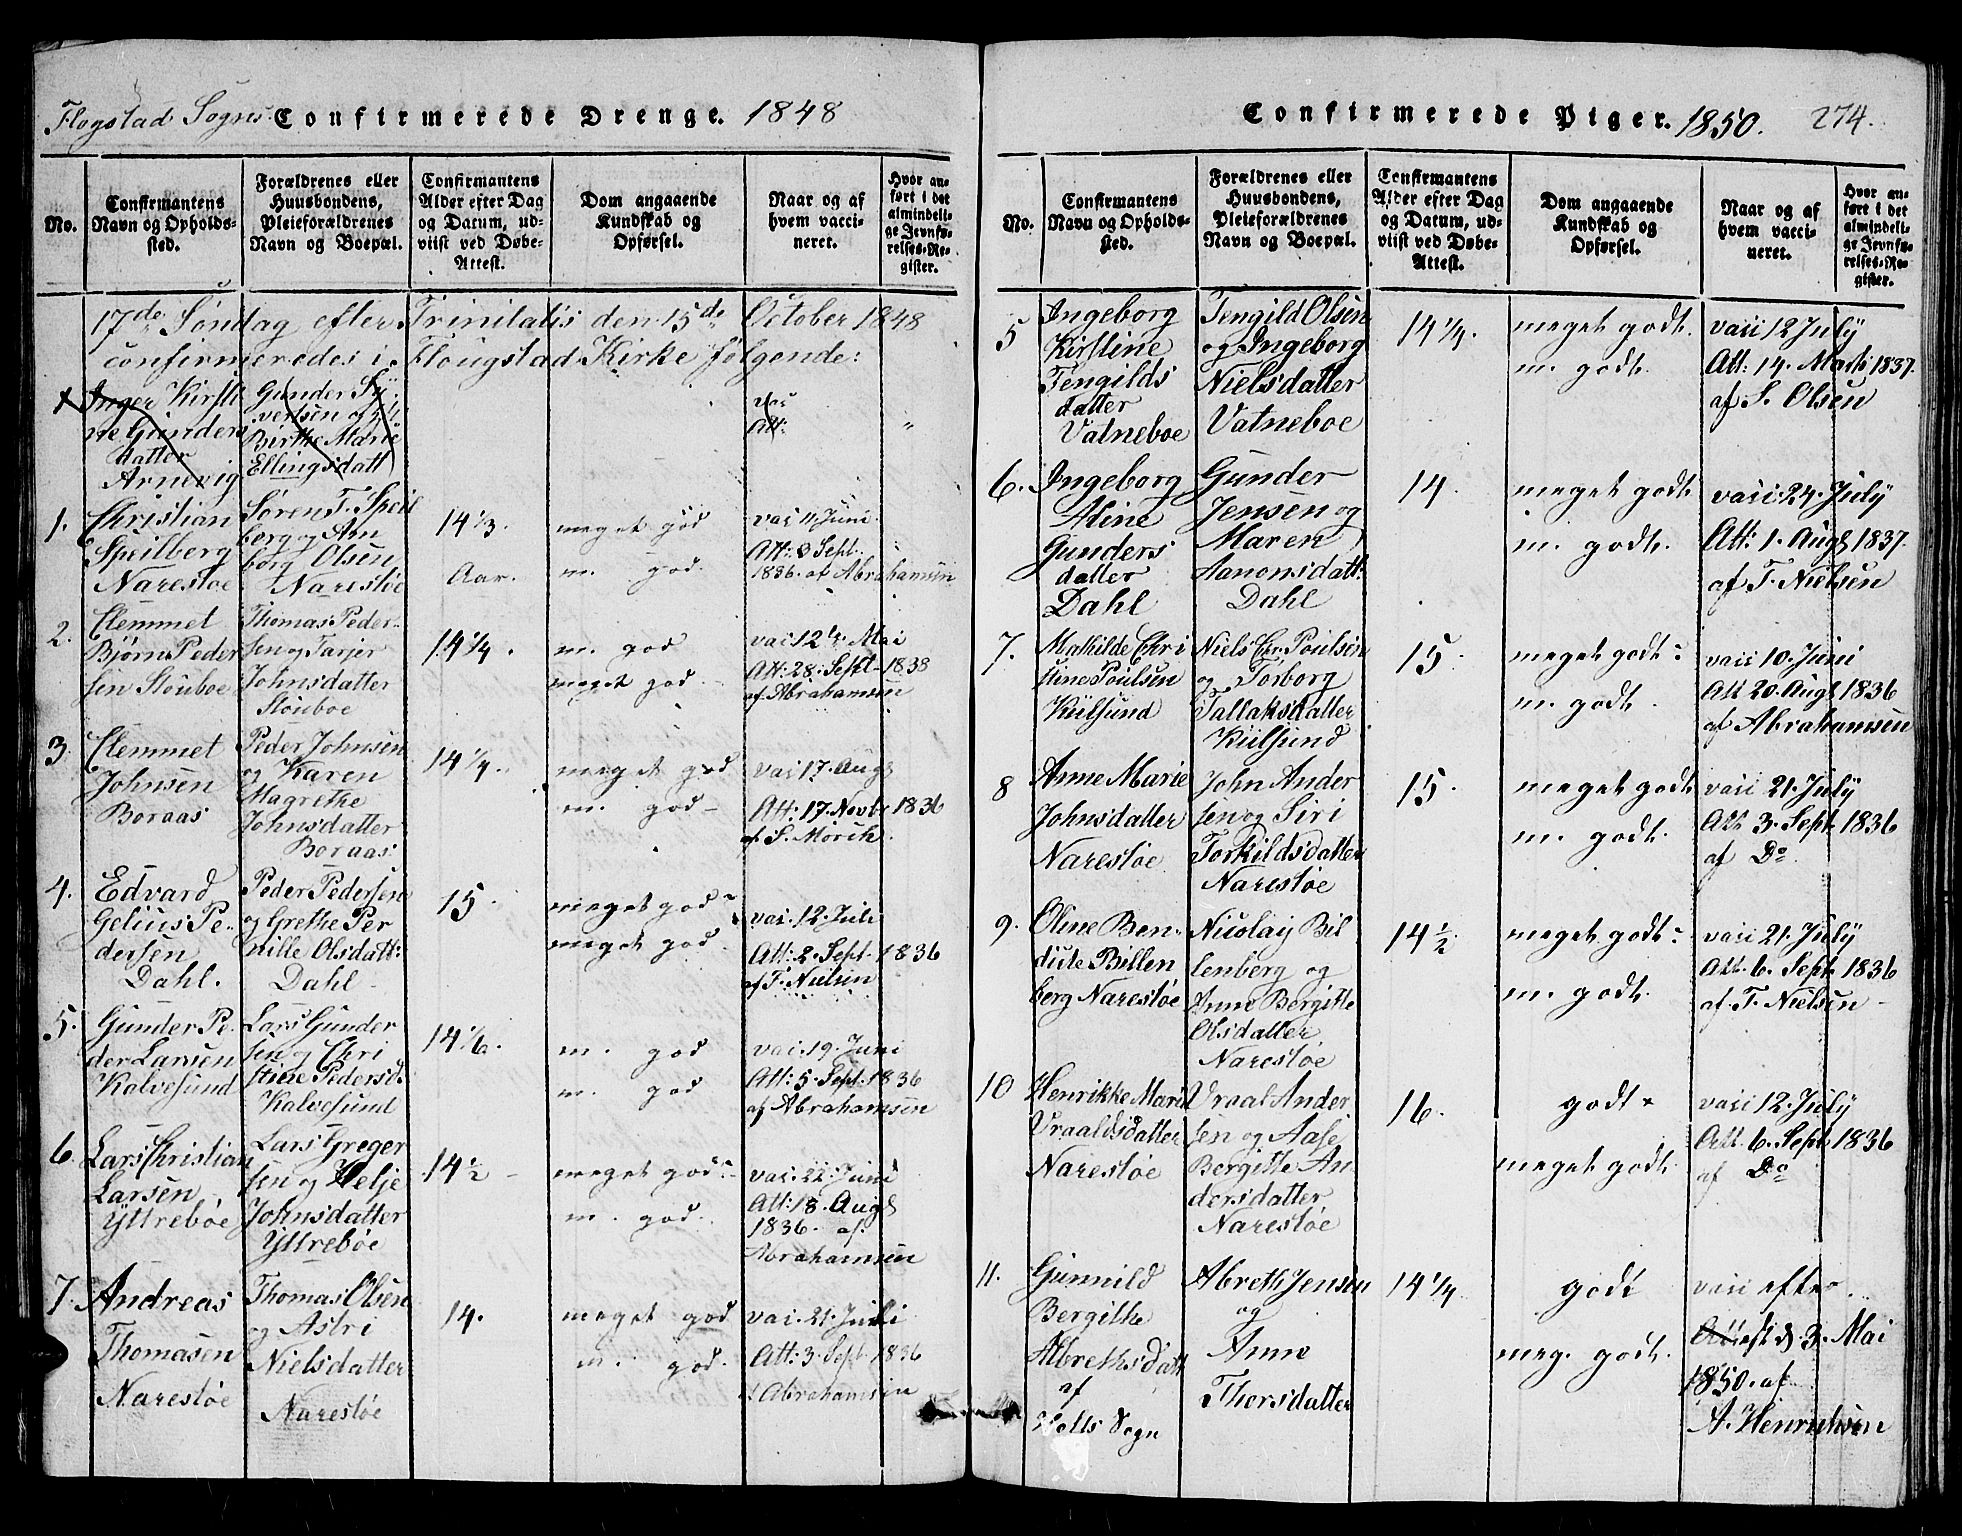 Flogstad Sogns Confirmerede Drenge. 1848
No.
Confirmantens
Navn og Opholds-
sted.
Forældrenes eller
Huusbondens,
Pleieforældrenes
Navn og Boepæl.
Confirmantens
Alder efter Dag
og Datum, ud-
viist ved Døbe-
Attest.
Dom angaaende
Kundskab og
Opførsel.
Naar og af
hvem vacci-
neret.
Hvor an-
ført i det
almindeli-
ge Jevnfø-
relses-Re-
gister.
17de Søndag efter Trinitatis den 15de October 1848
confirmeredes i Flougstad Kirke følgende:
1 Inger Kirsti
ne Gunders
datter
Arnevig
Gunder Sy
vertsen og
Birthe Marie
Ellingsdatt
vac
Att:
"
1. Christian
Speilberg
Narestøe
Søren F. Speil
berg og Am
borg Olsen
Narestøe
14 1/3.
Aar.
meget god
m. god.
vac 11 Juni
Att: 8 Sept.
1836. af Abrahamsen
2. Clemmet
Bjørn Peder
sen Stouboe
Thomas Peder-
sen og Tarjer
Johnsdatter
Stouboe
14 1/4.
m. god
meget god.
vac 12te Mai
Att: 28. Sept 1838
af Abrahamsen
3. Clemmet
Johnsen
Boraas
Peder Johnsen
og Karen
Magrethe
Johnsdatter
Boraas.
14 1/4.
meget god
m. god
vac 17. Aug
Att: 17. Novbr 1836
af S. Mörch.
4. Edvard
Gelius Pe-
dersen
Dahl.
Peder Pedersen
og Grethe Per
nille Olsdatt:
Dahl
15.
meget god
meget god.
vac. 12. Juli
Att: 2. Sept. 1836
af T. Nielsen
5. Gunder Pe-
der Larsen
Kalvesund
Lars Gunder
sen og Chri
stine Pedersd.
Kalvesund
14 1/6.
m. god
m. god
vac. 19. Juni
Att: 5. Sept. 1836
af Abrahamsen
6. Lars Christian
Larsen
Yttrebøe
Lars Greger
sen og Helje
Johnsdatter
Yttrebøe
14 1/2
meget god
m. god.
vac. 22. Juni
Att: 18. Aug
1836. af
Abrahamsen
7. Andreas
Thomasen
Narestøe
Thomas Olsen
og Astri
Nielsdatter
Narestøe
14.
meget god
m. god.
vac. 21. Juli
Att: 3. Sept. 1836
Abrahamsen
Confirmerede Piger. 1850. 274.
No.
Confirmantens
Navn og Opholds-
sted.
Forældrenes eller
Huusbondens,
Pleieforældrenes
Navn og Boepæl.
Confirmantens
Alder efter Dag
og Datum, ud-
viist ved Døbe-
Attest.
Dom angaaende
Kundskab og
Opførsel.
Naar og af
hvem vacci-
neret.
Hvor an-
ført i det
almindeli-
ge Jevnfø-
relses-Re-
gister.
5 Ingeborg
Kirstine
Tengilds
datter
Vatneboe
Tengild Olsen
og Ingeborg
Nielsdatter
Vatneboe
14 1/4.
meget godt.
m. godt.
vacc 12 July
Att: 14. Marti 1837.
af S. Olsen
6. Ingeborg
Aline
Gunders
datter
Dahl
Gunder
Jensen og
Maren
Aanonsdatt:
Dahl
14.
meget godt
m. godt.
vacc. 24. July
Att: 1. Aug 1837.
af T. Nielsen
7. Mathilde Chri
stine Poulsen
Kiilsund
Niels Chr. Poulsen
og Torborg
Tallaksdatter
Kiilsund
15.
meget godt
m. godt.
vacc 10. Juni
Att 20. Aug 1836
af Abrahamsen
8 Anne Marie
Johnsdatter
Narestøe
John Ander
sen og Siri
Torkildsdatter
Narestøe
15.
meget godt
m. godt.
vacc 21. July
Att 3. Sept 1836
af Do.
9. Oline Ben-
dicte Billen
berg Narestøe
Nicolay Bil
lenberg og
Anne Bergitte
Olsdatter
Narestøe
14 1/2
meget godt
m. godt.
vacc 21. July
Att. 6. Sept 1836
af T. Nielsen
10 Henrikke Marie
Uraaldsdatter
Narestøe
Uraal Ander
sen og Aase
Bergitte An
dersdatter
Narestøe
16.
godt
meget godt.
vacc 12. July
Att 6. Sept 1836
af Do
11. Gunnild
Bergithe
Albrethsdatt
af
Holts Sogn
Abreth Jensen
og
Anne
Thorsdatter
14 1/4
godt
meg. godt.
vacc efter
Att est d. 3. Mai
1850. af
A. Henrichsen